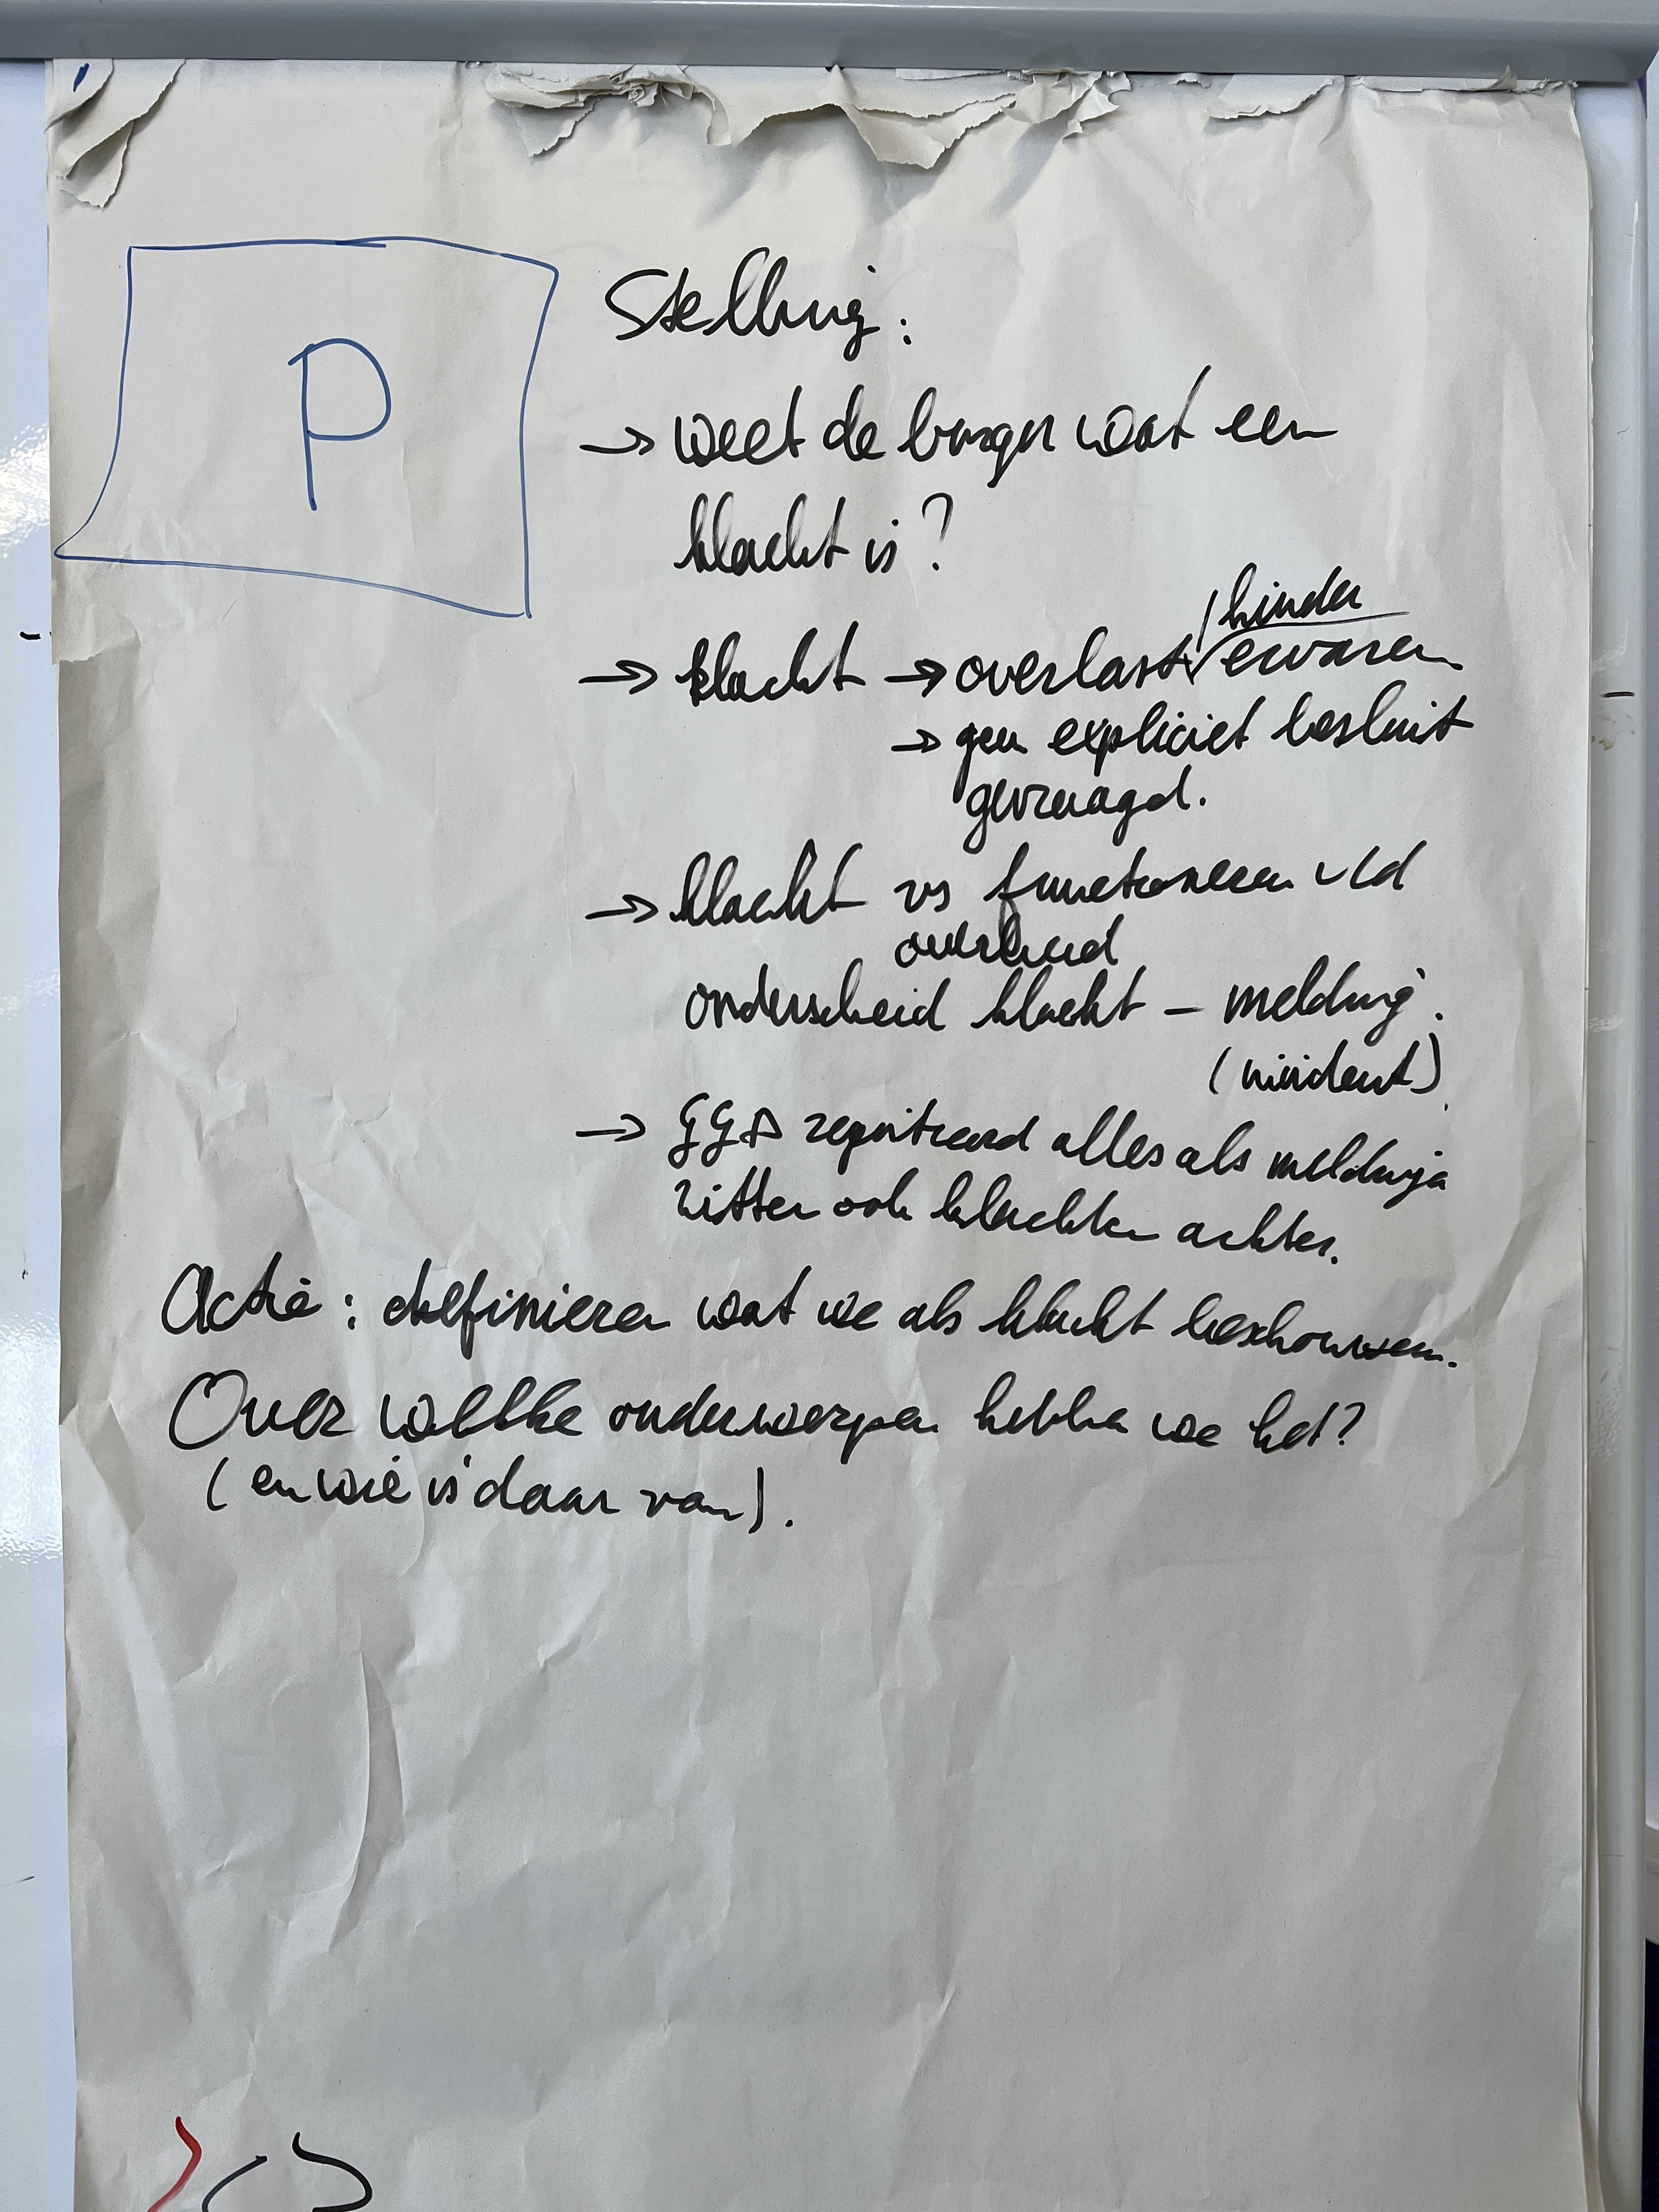 P
Stelling:
→ weet de burger wat een
klacht is?
/ hinder
→ klacht → overlast ervaren
→ geen expliciet besluit
gevraagd.
→ klacht vs functioneren v/d
overheid
onderscheid klacht – melding.
(incident)
→ GGD registreerd alles als
zitten ook klachten achter.
Actie: definieren wat we als klacht beschouwen.
Over welke onderwerpen hebben we het?
(en wie is daar van).